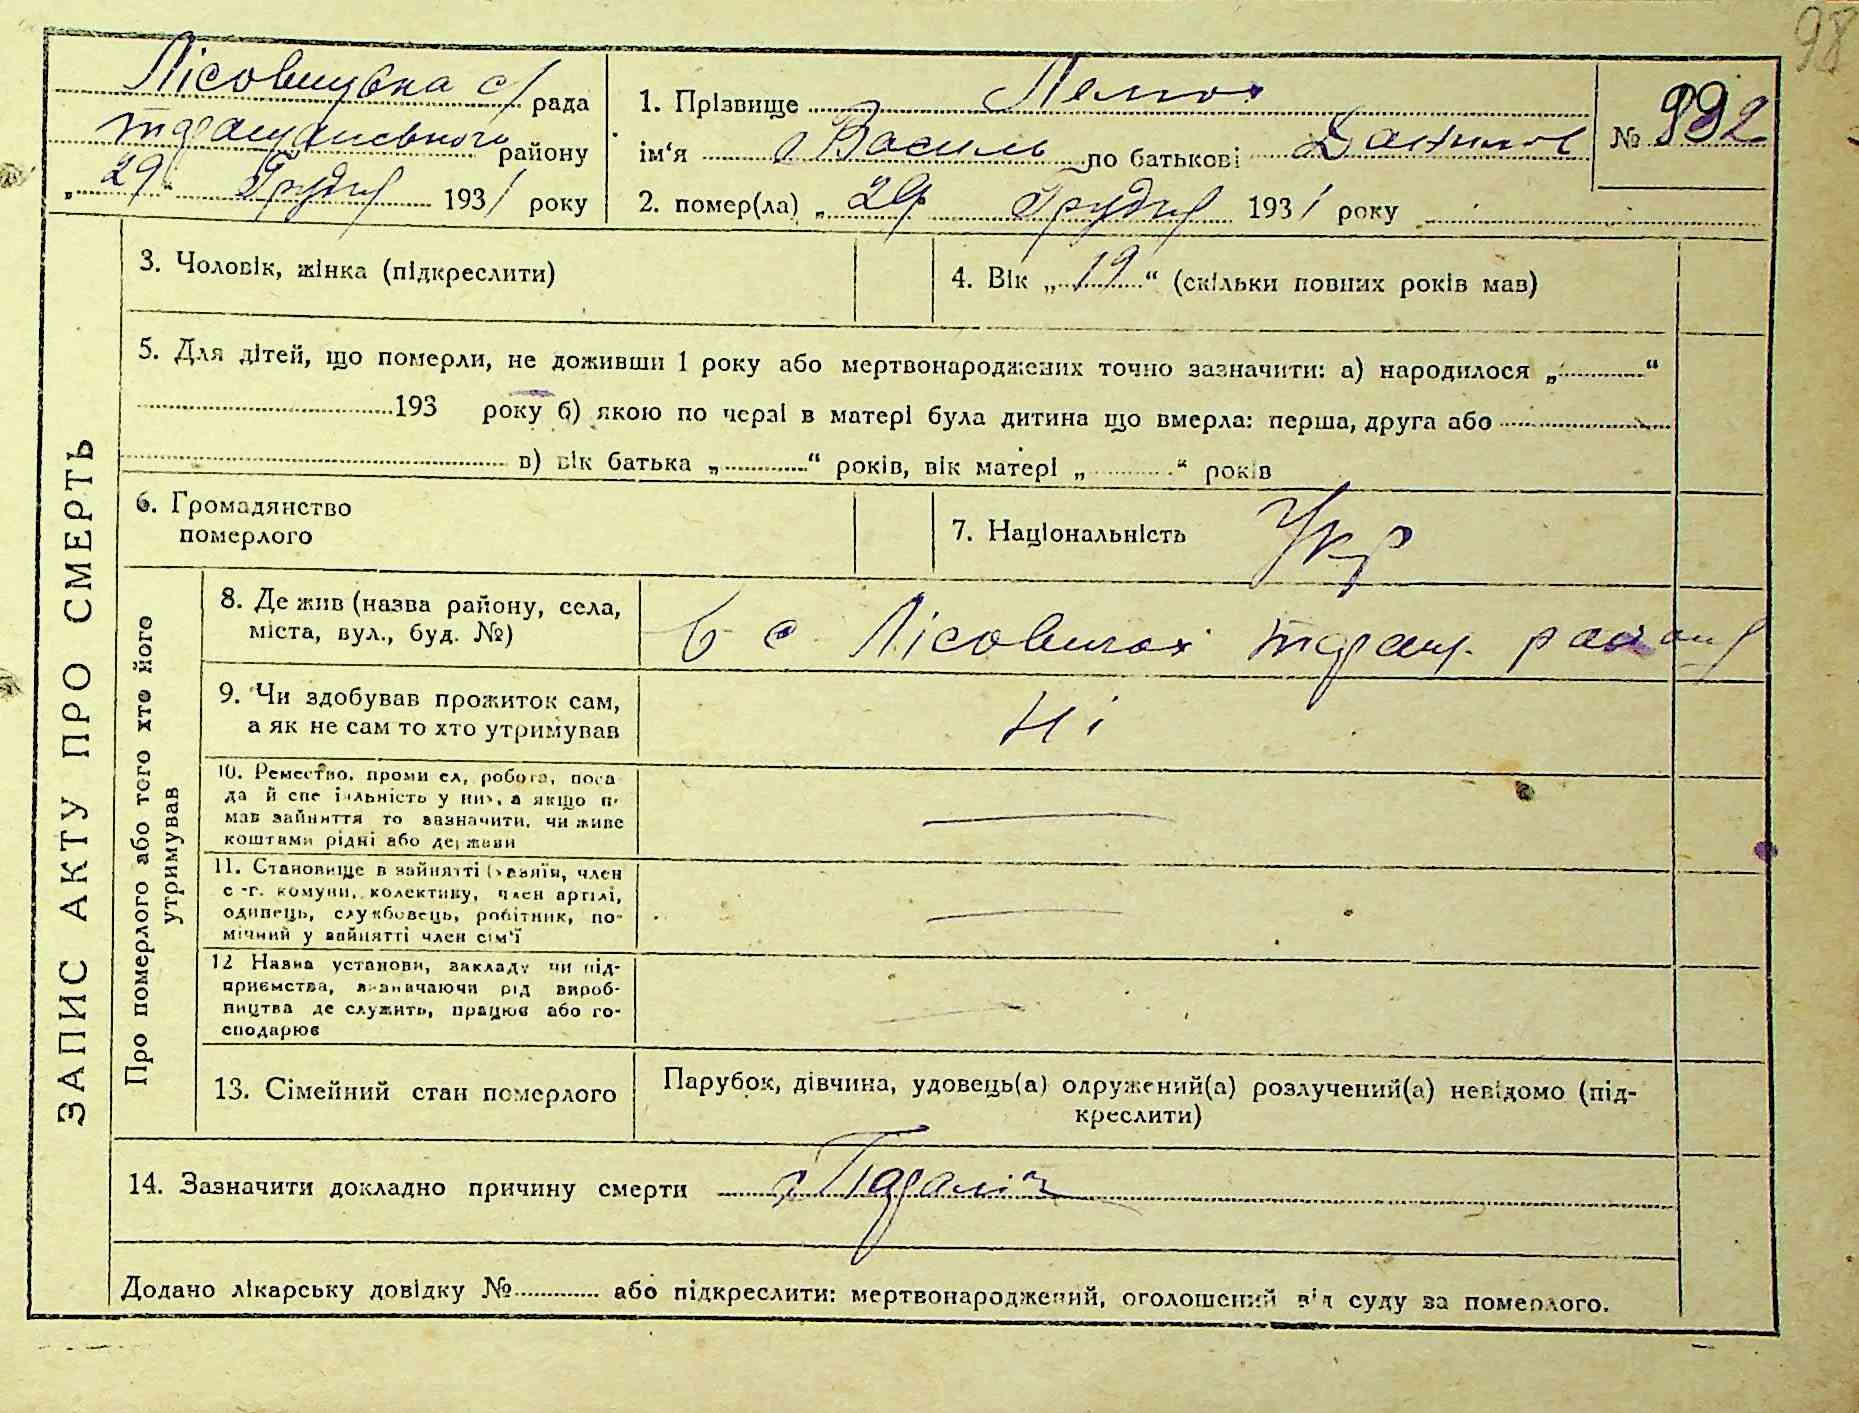 98
Лісовицька с/рада
таращанського району
„29“ Грудня 1931 року
1. Прізвище
№ 992
ім'я Василь по батькові Данилов
2. помер(ла) „29 Грудня 1931 року
ЗАПИС АКТУ ПРО СМЕРТЬ
3. Чоловік, жінка (підкреслити)
4. Вік „19“ (скільки повних років мав)
5. Для дітей, що померли, не доживши 1 року або мертвонароджених точно зазначити: а) народилося „............“
193 року б) якою по черзі в матері була дитина що вмерла: перша, друга або
в) вік батька „............“ років, вік матері „............“ років
6. Громадянство
померлого
7. Національність Укр
Про померлого або того хто його
утримував
8. Де жив (назва району, села,
міста, вул., буд. №)
в с Лісовичах таращ. району
9. Чи здобував прожиток сам,
а як не сам то хто утримував
Ні
10. Ремество, промисел, робота, поса
да й спеціальність у них, а якщо н
мав зайняття то зазначити, чи живе
коштами рідні або держави
11. Становище в зайнятті (хазяїн, член
с-г. комуни, колективу, член артілі,
одинець, службовець, робітник, по-
мічний у зайнятті член сім'ї
12 Назва установи, закладу чи під-
приємства, визначаючи рід вироб-
ництва де служить, працює або го-
сподарює
13. Сімейний стан померлого
Парубок, дівчина, удовець(а) одружений(а) розлучений(а) невідомо (під-
креслити)
14. Зазначити докладно причину смерти Параліч
Додано лікарську довідку №............ або підкреслити: мертвонароджений, оголошений від суду за померлого.